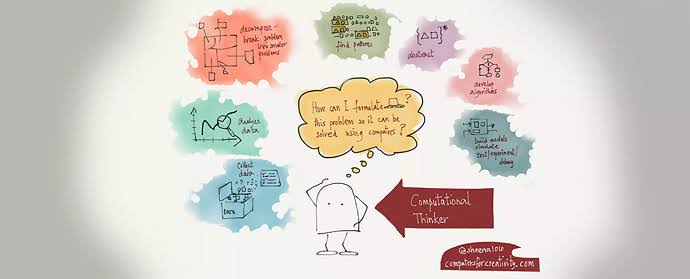 decompose -
break problem
into smaller
problems
find patterns
{△□}*
abstract
develop
algorithms
analyze
data
How can I formulate ?
this problem so it can be
solved using computers?
build models
simulate
test/experiment/
debug
Collect
data
DATA
Computational
Thinker
@sheena1010
computersforcreativity.com